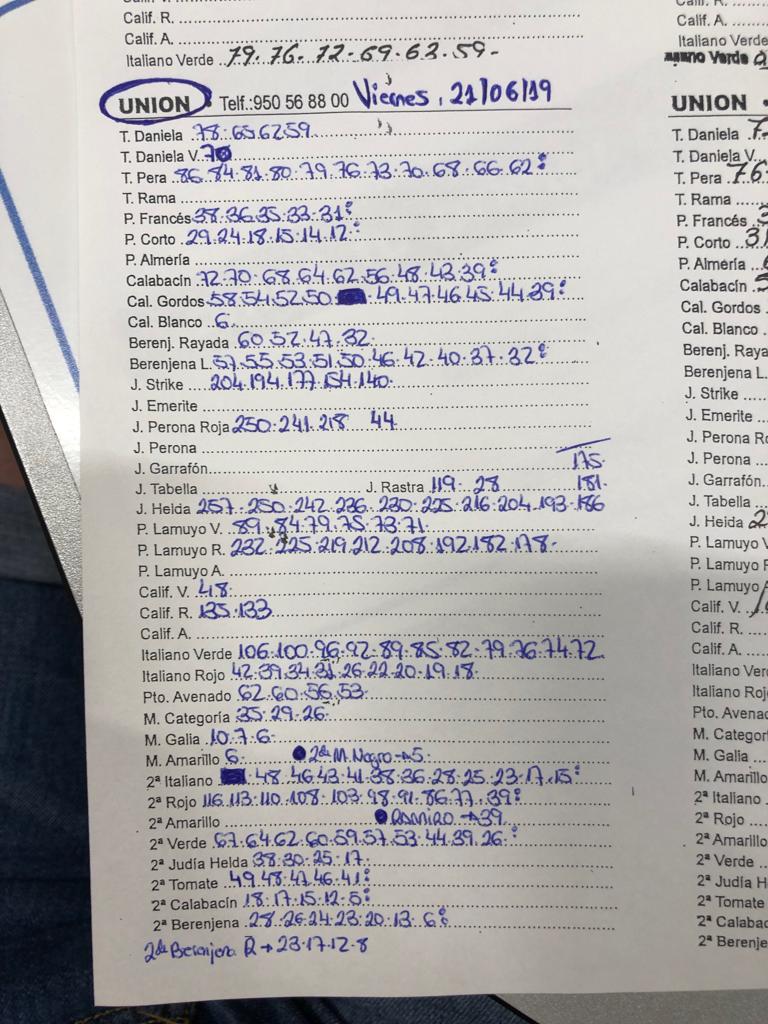 Calif. R.
Calif. A.
Italiano Verde 79.76.72.69.63.59-
UNION Telf.:950 56 88 00 Viernes, 21/06/19
T. Daniela 78.65.62.59
T. Daniela V. 70
T. Pera 86.84.81.80.79.76.73.70.68.66.62
T. Rama
P. Francés 38.36.35.33.31
P. Corto 29.24.18.15.14.12
P. Almería
Calabacín 72.70.68.64.62.56.48.43.39
Cal. Gordos 58.54.52.50 49.47.46.45.44.39
Cal. Blanco 6
Berenj. Rayada 60.52.47.32
Berenjena L. 57.55.53.51.50.46.42.40.37.32
J. Strike 204.194.177.154.140
J. Emerite
J. Perona Roja 250.241.218 44
J. Perona
J. Garrafón 175
J. Tabella J. Rastra 119.28 181
J. Helda 257.250.242.236.230.225.216.204.193.186
P. Lamuyo V. 89.84.79.75.73.71
P. Lamuyo R. 232.225.219.212.208.192.182.178-
P. Lamuyo A.
Calif. V. 48
Calif. R. 135.133
Calif. A.
Italiano Verde 106.100.96.92.89.85.82.79.76.74.72
Italiano Rojo 42.39.34.31.26.22.20.19.18
Pto. Avenado 62.60.56.53
M. Categoría 35.29.26
M. Galia 10.7.6
M. Amarillo 6 2da M. Negro→5
2ª Italiano 48.46.43.41.38.36.28.25.23.17.15
2ª Rojo 116.113.110.108.103.98.91.86.77.39
2ª Amarillo RAMIRO→39
2ª Verde 67.64.62.60.59.57.53.44.39.26
2ª Judía Helda 38.30.25.17
2ª Tomate 49.48.47.46.41
2ª Calabacín 18.17.15.12.5
2ª Berenjena 28.26.24.23.20.13.6
2da Berenjena R→23.17.12.8
Calif. A.
Italiano Verde
UNION
T. Daniela
T. Daniela V.
T. Pera 76
T. Rama
P. Francés
P. Corto
P. Almería
Calabacín
Cal. Gordos
Cal. Blanco
Berenj. Raya
Berenjena L
J. Strike
J. Emerite
J. Perona Ro
J. Perona
J. Garrafón
J. Tabella
J. Helda 2
P. Lamuyo V
P. Lamuyo
P. Lamuyo
Calif. V.
Calif. R.
Calif. A.
Italiano Ver
Italiano Roj
Pto. Avenad
M. Categor
M. Galia
M. Amarillo
2ª Italiano
2ª Rojo
2ª Amarillo
2ª Verde
2ª Judía H
2ª Tomate
2ª Calabac
2ª Berenje